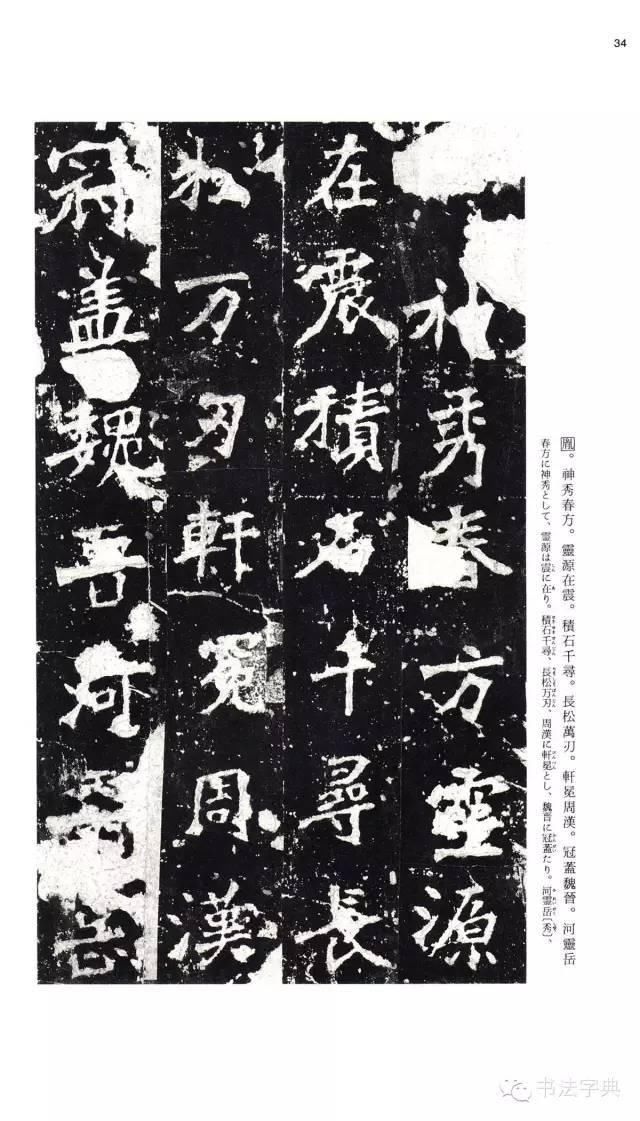 34
神秀春方靈源
在震積石千尋長
松万刃軒冕周漢
冠盖魏晉河靈岳
胤。神秀春方。靈源在震。積石千尋。長松萬刃。軒冕周漢。冠蓋魏晉。河靈岳
春方に神秀として、霊源は震に在り。積石千尋、長松万刃、周漢に軒冕とし、魏晋に冠蓋たり。河霊岳〔秀〕、
书法字典